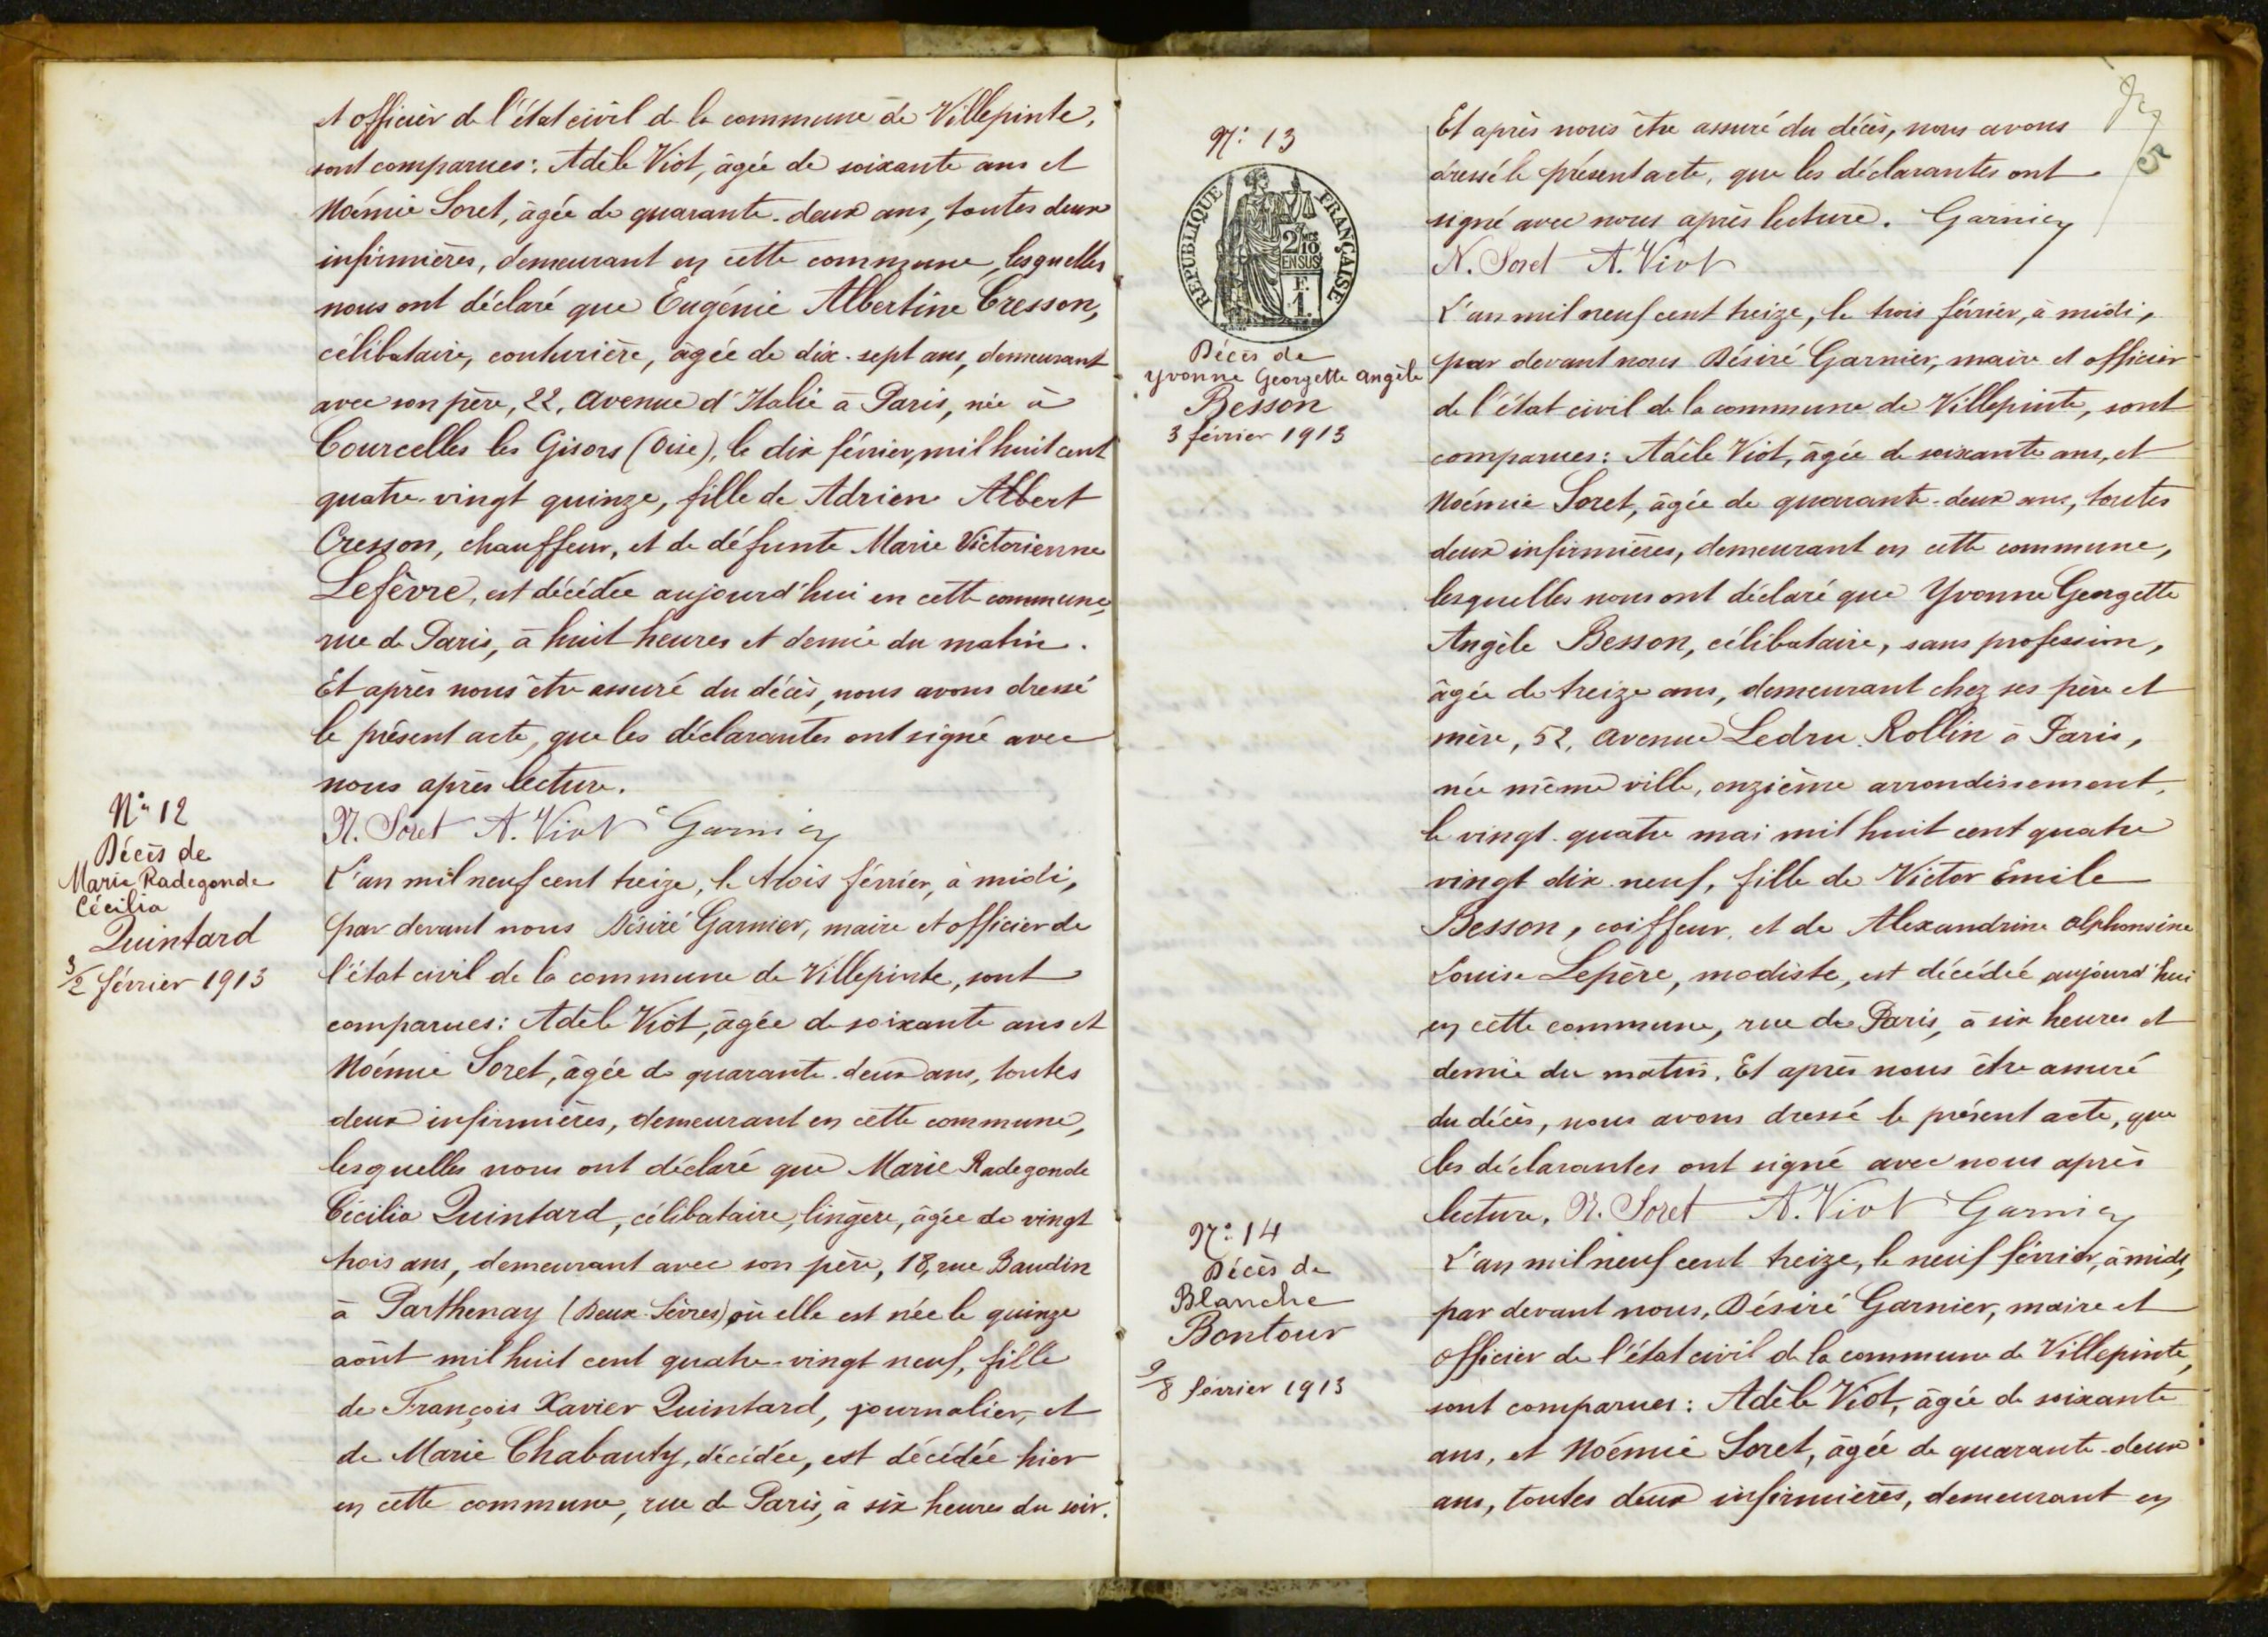 et officier de l'état civil de la commune de Villepinte,
sont comparues : Adèle Viot, âgée de soixante ans et
Noémie Soret, âgée de quarante-deux ans, toutes deux
infirmières, demeurant en cette commune, lesquelles
nous ont déclaré que Eugénie Albertine Cresson,
célibataire, couturière, âgée de dix-sept ans, demeurant
avec son père, 22, avenue d'Italie à Paris, née à
Courcelles les Gisors (Oise), le dix février, mil huit cent
quatre-vingt quinze, fille de Adrien Albert
Cresson, chauffeur, et de défunte Marie Victorienne
Lefèvre, est décédée aujourd'hui en cette commune,
rue de Paris, à huit heures et demie du matin.
Et après nous être assuré du décès, nous avons dressé
le présent acte, que les déclarantes ont signé avec
nous après lecture.
N. Soret A. Viot Garnier
N° 12
Décès de
Marie Radegonde
Cécilia
Quintard
3/2 février 1913
L'an mil neuf cent treize, le trois février, à midi,
par devant nous Désiré Garnier, maire et officier de
l'état civil de la commune de Villepinte, sont
comparues : Adèle Viot, âgée de soixante ans et
Noémie Soret, âgée de quarante-deux ans, toutes
deux infirmières, demeurant en cette commune,
lesquelles nous ont déclaré que Marie Radegonde
Cécilia Quintard, célibataire, lingère, âgée de vingt
trois ans, demeurant avec son père, 18, rue Baudin
à Parthenay (Deux-Sèvres) où elle est née le quinze
août mil huit cent quatre-vingt neuf, fille
de François Xavier Quintard, journalier, et
de Marie Chabauty, décédée, est décédée hier
en cette commune, rue de Paris, à six heures du soir.
5
Et après nous être assuré du décès, nous avons
dressé le présent acte, que les déclarantes ont
signé avec nous après lecture. Garnier
N. Soret A. Viot
N° 13
REPUBLIQUE FRANÇAISE
2 MES 10 EN SUS
F. 1.
Décès de
Yvonne Georgette Angèle
Besson
3 février 1913
L'an mil neuf cent treize, le trois février, à midi,
par devant nous Désiré Garnier, maire et officier
de l'état civil de la commune de Villepinte, sont
comparues : Adèle Viot, âgée de soixante ans, et
Noémie Soret, âgée de quarante-deux ans, toutes
deux infirmières, demeurant en cette commune,
lesquelles nous ont déclaré que Yvonne Georgette
Angèle Besson, célibataire, sans profession,
âgée de treize ans, demeurant chez ses père et
mère, 52, avenue Ledru-Rollin à Paris,
née même ville, onzième arrondissement,
le vingt-quatre mai mil huit cent quatre
vingt dix-neuf, fille de Victor Émile
Besson, coiffeur, et de Alexandrine Alphonsine
Louise Lepère, modiste, est décédée aujourd'hui
en cette commune, rue de Paris, à six heures et
demie du matin. Et après nous être assuré
du décès, nous avons dressé le présent acte, que
les déclarantes ont signé avec nous après
lecture. N. Soret A. Viot Garnier
N° 14
Décès de
Blanche
Bontour
9/8 février 1913
L'an mil neuf cent treize, le neuf février, à midi,
par devant nous, Désiré Garnier, maire et
officier de l'état civil de la commune de Villepinte,
sont comparues : Adèle Viot, âgée de soixante
ans, et Noémie Soret, âgée de quarante-deux
ans, toutes deux infirmières, demeurant en